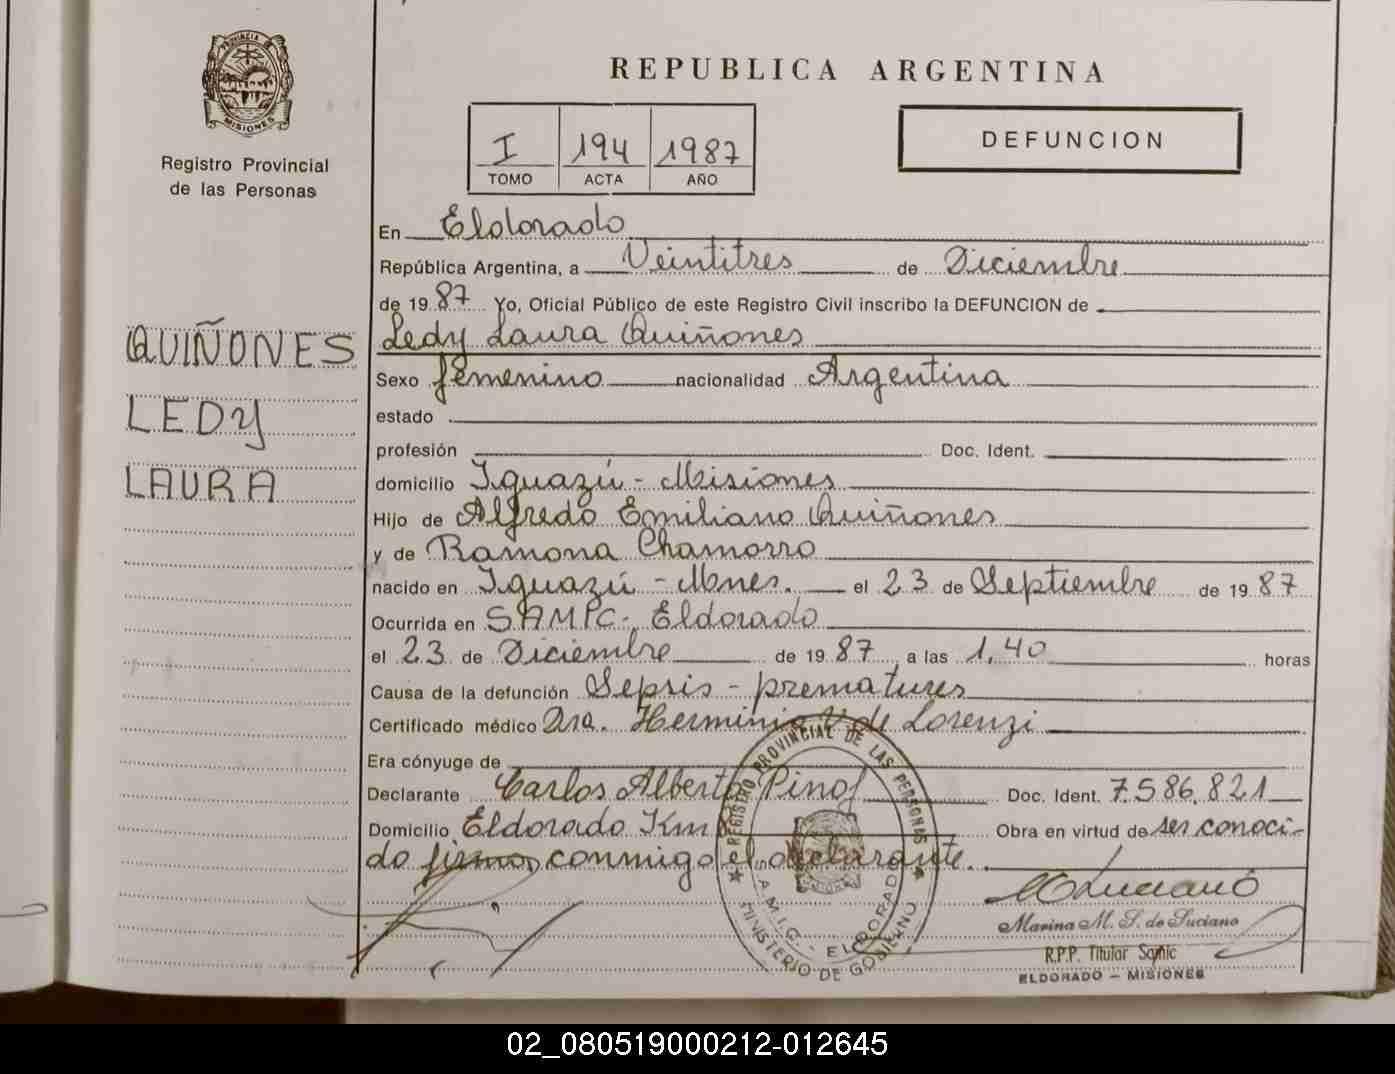 PROVINCIA
MISIONES
Registro Provincial
de las Personas
QUIÑONES
LEDY
LAURA
REPUBLICA ARGENTINA
I 194 1987
TOMO ACTA AÑO
DEFUNCION
En Eldorado
República Argentina, a Veintitres de Diciembre
de 1987 Yo, Oficial Público de este Registro Civil inscribo la DEFUNCION de
Ledy Laura Quiñones
Sexo femenino nacionalidad Argentina
estado
profesión Doc. Ident.
domicilio Iguazú - Misiones
Hijo de Alfredo Emiliano Quiñones
y de Ramona Chamorro
nacido en Iguazú - Mnes. el 23 de Septiembre de 1987
Ocurrida en SAMIC - Eldorado
el 23 de Diciembre de 1987 a las 1,40 horas
Causa de la defunción Sepsis - prematurez
Certificado médico Dra. Herminia V de Lorenzi
Era cónyuge de
Declarante Carlos Alberto Pino Doc. Ident. 7.586.821
Domicilio Eldorado Km Obra en virtud de ser conoci-
do firma conmigo el declarante.
REGISTRO PROVINCIAL DE LAS PERSONAS
S.A.M.I.C. - ELDORADO
MINISTERIO DE GOBIERNO
Luciano
Marina M. S. de Luciano
R.P.P. Titular Samic
ELDORADO - MISIONES
02_080519000212-012645